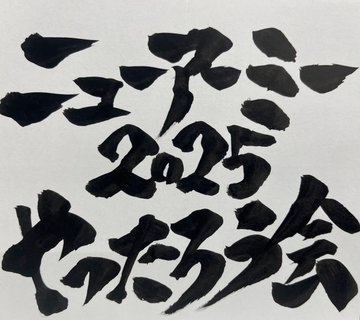 ニューアーミー
2025
やったろう絵